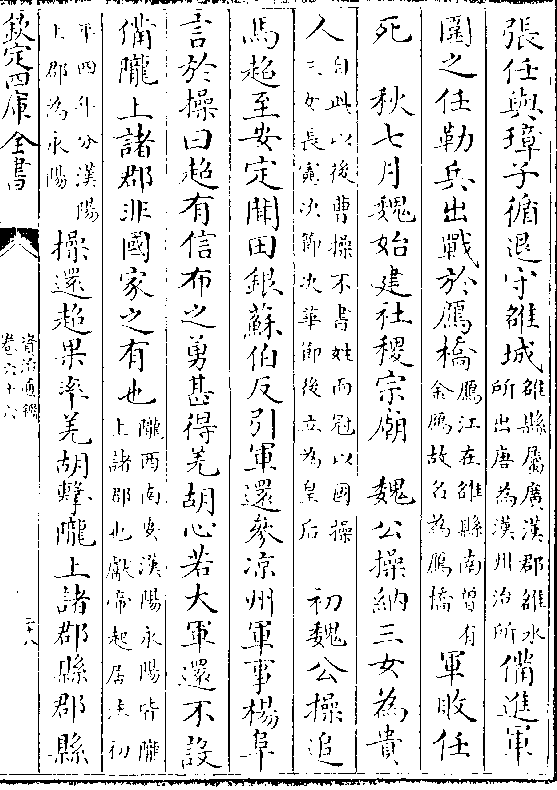 張任與璋子循退守雒城雒縣屬廣漢郡雒水所出唐為漢州治所備進軍
圍之任勒兵出戰於鴈橋鴈江在雒縣南曽有金鴈故名為鴈橋軍敗任
死　秋七月魏始建社稷宗廟　魏公操納三女為貴
人自此以後曹操不書姓而冠以國操三女長憲次節次華節後立為皇后　初魏公操追
馬超至安定聞田銀蘇伯反引軍還參凉州軍事楊阜
言於操曰超有信布之勇甚得羌胡心若大軍還不設
備隴上諸郡非國家之有也隴西南安漢陽永陽皆隴上諸郡也獻帝起居注初
平四年分漢陽上郡為永陽操還超果率羌胡擊隴上諸郡縣郡縣
欽定四庫全書
資治通鑑
卷六十六
二十八